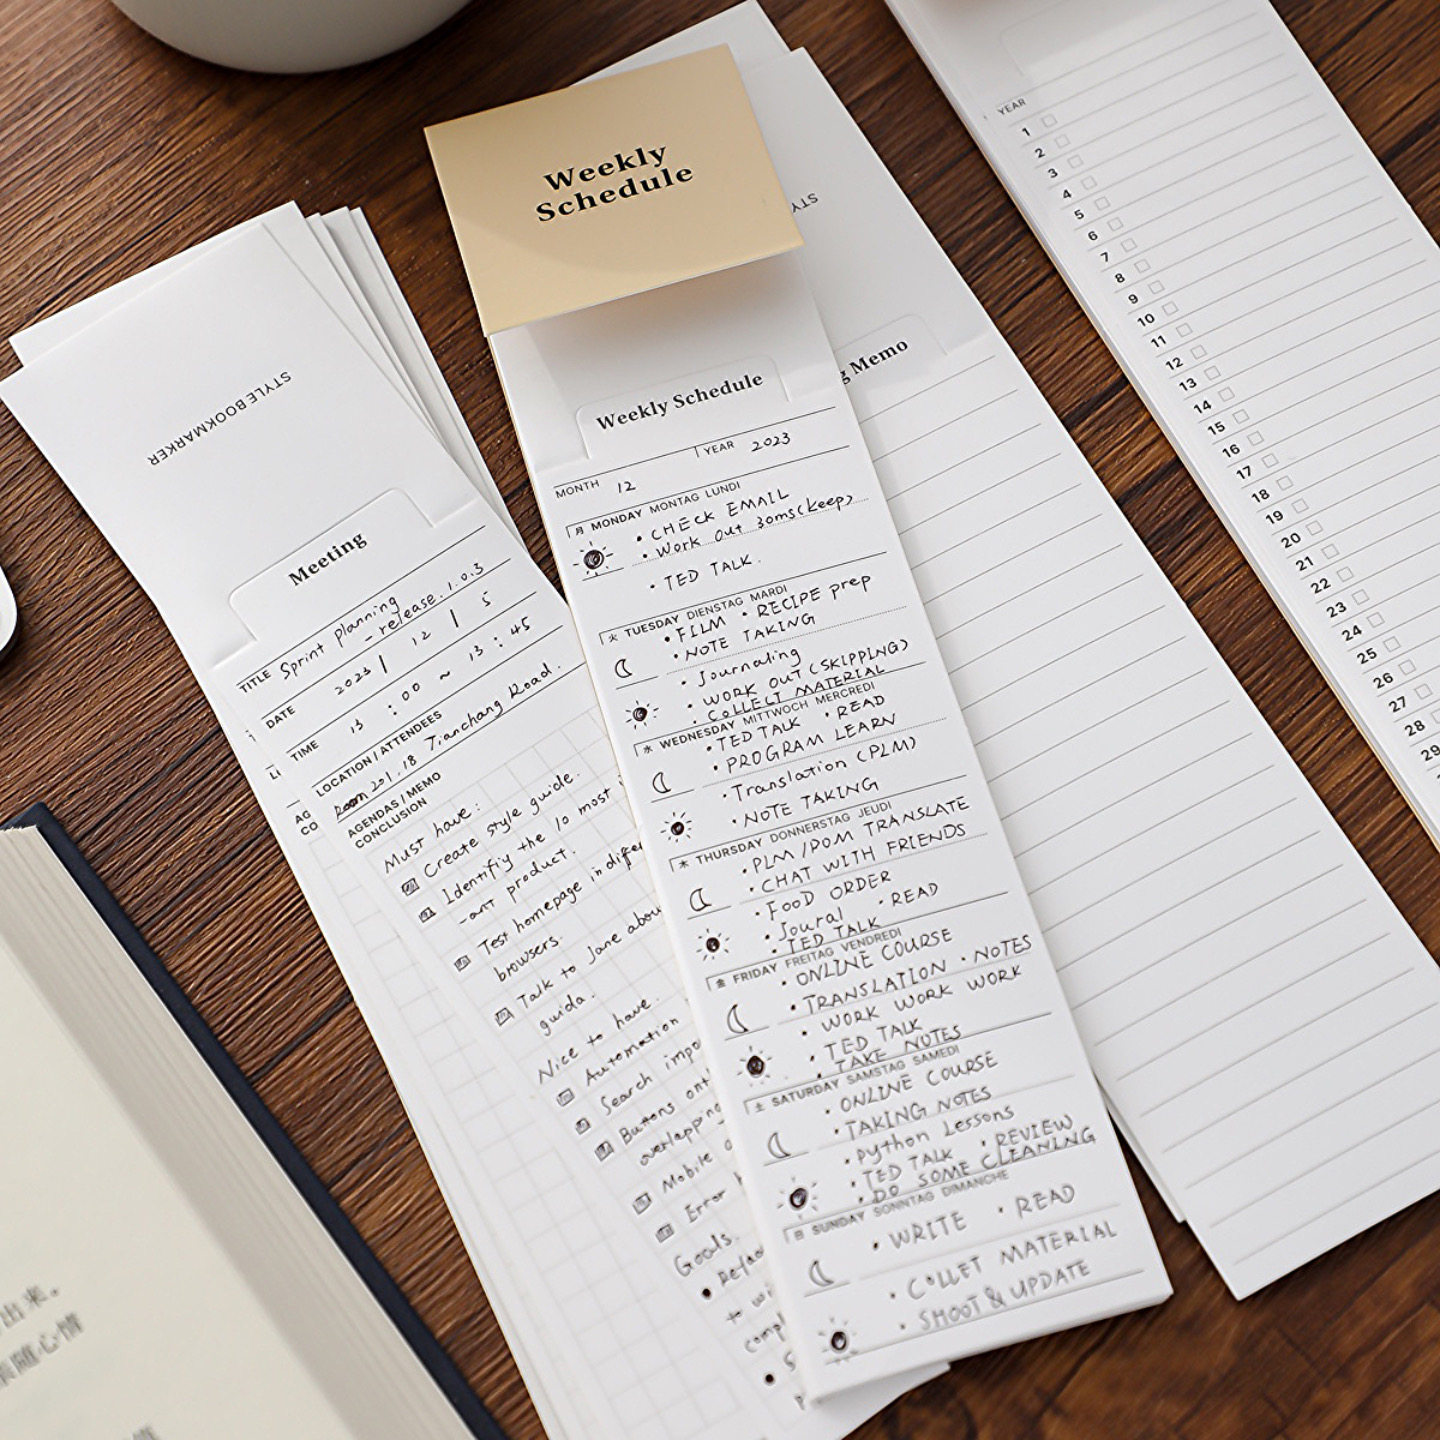 STYLE BOOKMARKER
Meeting
TITLE Sprint planning
- release.1.0.3
DATE 2023 | 12 | 5
TIME 13 : 00 ~ 13 : 45
LOCATION / ATTENDEES
Room 201.18 Tianchang Road.
AGENDAS / MEMO
CONCLUSION
Must have:
Create style guide.
Identifiy the 10 most
-ant product.
Test homepage in
browsers.
Talk to Jane
guida.
Nice to have.
Automation
Search
Buttons
Mobile
Error
Goals.
to
AG
CO
Weekly
Schedule
Weekly Schedule
MONTH 12 YEAR 2023
月 MONDAY MONTAG LUNDI
• CHECK EMAIL
• Work out 30ms(keep)
• TED TALK.
火 TUESDAY DIENSTAG MARDI
• FILM • RECIPE prep
• NOTE TAKING
• Journaling
• WORK OUT (SKIPPING)
• COLLECT MATERIAL
水 WEDNESDAY MITTWOCH MERCREDI
• TED TALK • READ
• PROGRAM LEARN
• Translation (PLM)
• NOTE TAKING
木 THURSDAY DONNERSTAG JEUDI
• PLM/POM TRANSLATE
• CHAT WITH FRIENDS
• FOOD ORDER
• Joural • READ
• TED TALK
金 FRIDAY FREITAG VENDREDI
• ONLINE COURSE
• TRANSLATION • NOTES
• WORK WORK WORK
• TED TALK
• TAKE NOTES
土 SATURDAY SAMSTAG SAMEDI
• ONLINE COURSE
• TAKING NOTES
• python Lessons
• TED TALK • REVIEW
• DO SOME CLEANING
日 SUNDAY SONNTAG DIMANCHE
• WRITE • READ
• COLLET MATERIAL
• SHOOT & UPDATE
Memo
YEAR
1
2
3
4
5
6
7
8
9
10
11
12
13
14
15
16
17
18
19
20
21
22
23
24
25
26
27
28
29
出来。
随心情